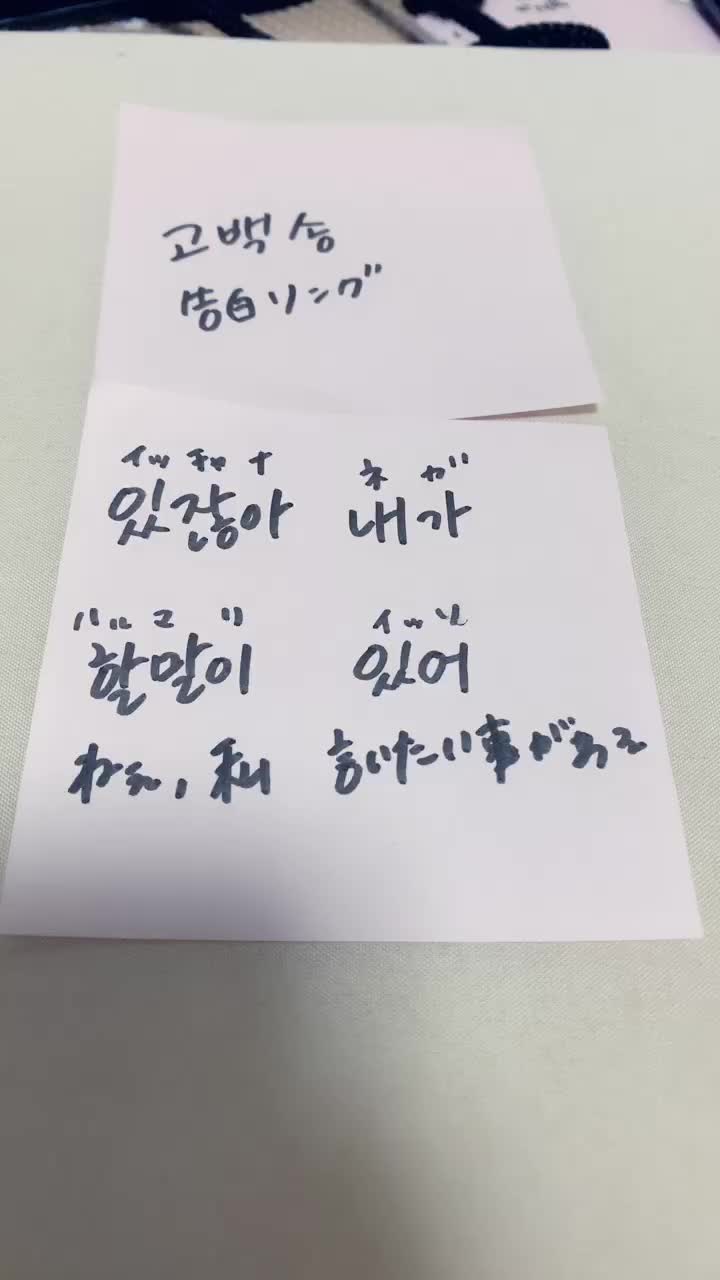 고백송
告白リング
イッ チャ ナ ネ ガ
있잖아 내가
ハル マ リ イッ ソ
할말이 있어
ねえ、私 言いたい事がある